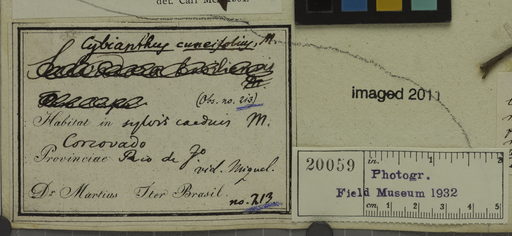 det. Carl
Cybianthus cuneifolius, M.
(Obs. no. 213)
Habitat in sylvis caeduis M.
Corcovado
Provinciae Rio de Jo
vid. Miquel.
Dr Martius Iter Brasil. no. 213
imaged 2011
20059
in. 1 2
Photogr.
Field Museum 1932
cm 1 2 3 4 5